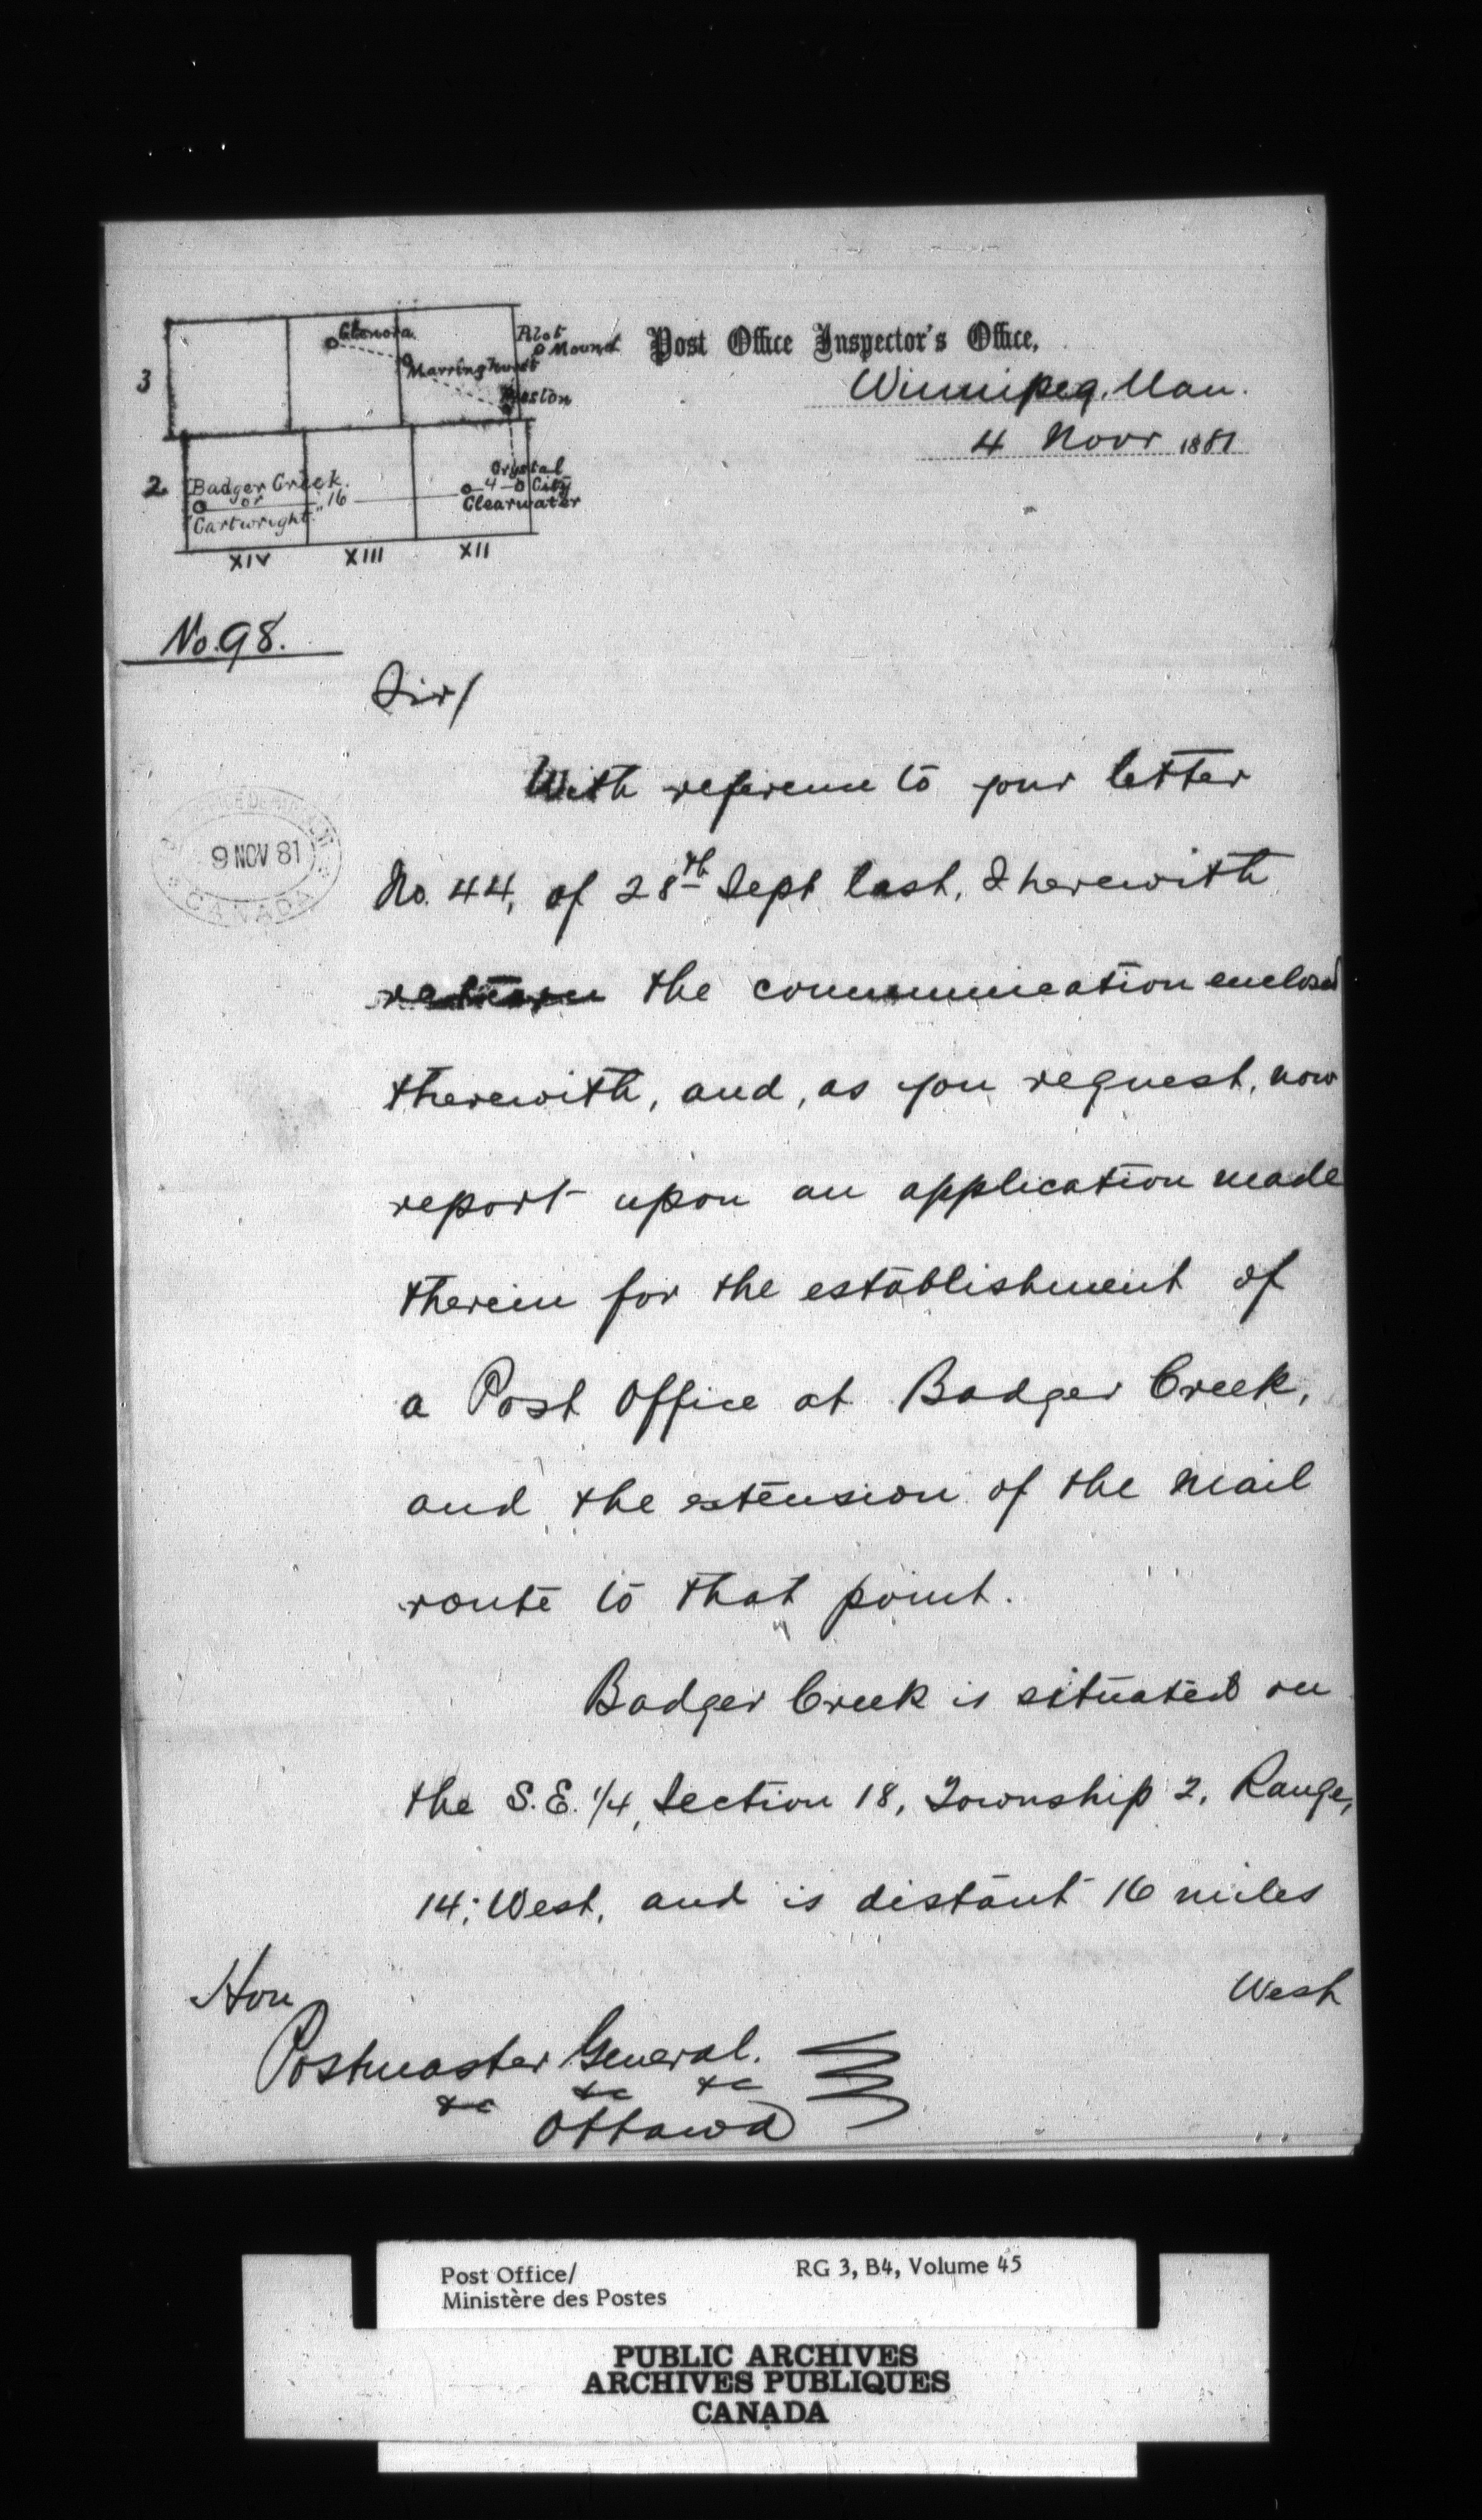 Glenora
Marringhurst
Pilot
Mound
Preston
3
2
Badger Creek
or
"Cartwright"
16
4
Crystal
City
Clearwater
XIV XIII XII
Post Office Inspector's Office,
Winnipeg. Man.
4 Novr 1881
No. 98.
Sir/
With reference to your letter
No. 44, of 28th Sept last, I herewith
return the communication enclosed
therewith, and, as you request, now
report upon an application made
therein for the establishment of
a Post Office at Badger Creek,
and the extension of the mail
route to that point.
Badger Creek is situated on
the S.E. 1/4, Section 18, Township 2, Range,
14, West, and is distant 16 miles
West
Hon
Postmaster General.
&c &c &c
Ottawa
9 NOV 81
CANADA
Post Office/
Ministère des Postes
RG 3, B4, Volume 45
PUBLIC ARCHIVES
ARCHIVES PUBLIQUES
CANADA